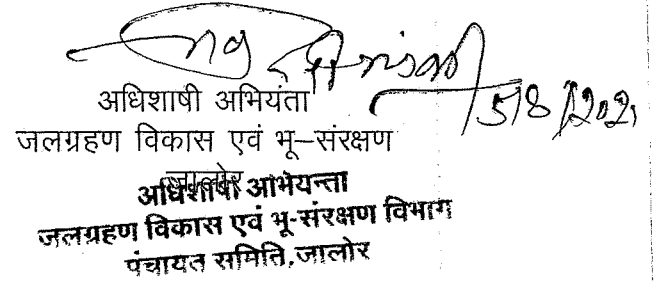 5/8/202
अधिशाषी अभियंता
जलग्रहण विकास एवं भू–संरक्षण
जालोर
अधिशाषी अभियन्ता
जलग्रहण विकास एवं भू-संरक्षण विभाग
पंचायत समिति,जालोर